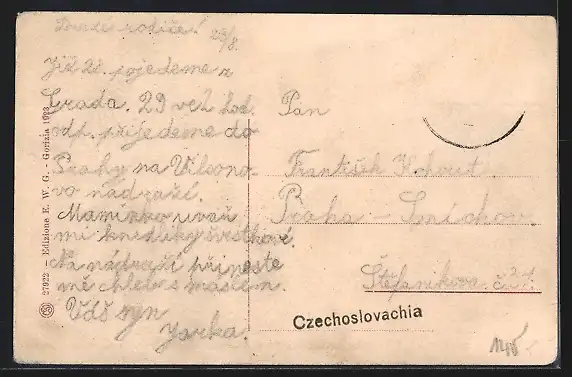 Drazí rodiče! 23/8.
Již 28. pojedeme z
Grada. 29 ve 2 hod.
odp. přijedeme do
Prahy na Vilsono-
vo nádraží.
Maminko uvař
mi knedlíky švestkové.
Na nádraží přineste
mě chleb s máslem.
Váš syn
Jarka.
Pán
František Kohout
Praha - Smíchov.
Štefanikova č. 21.
Czechoslovachia
27922 - Edizione E. W. G. - Gorizia 1923